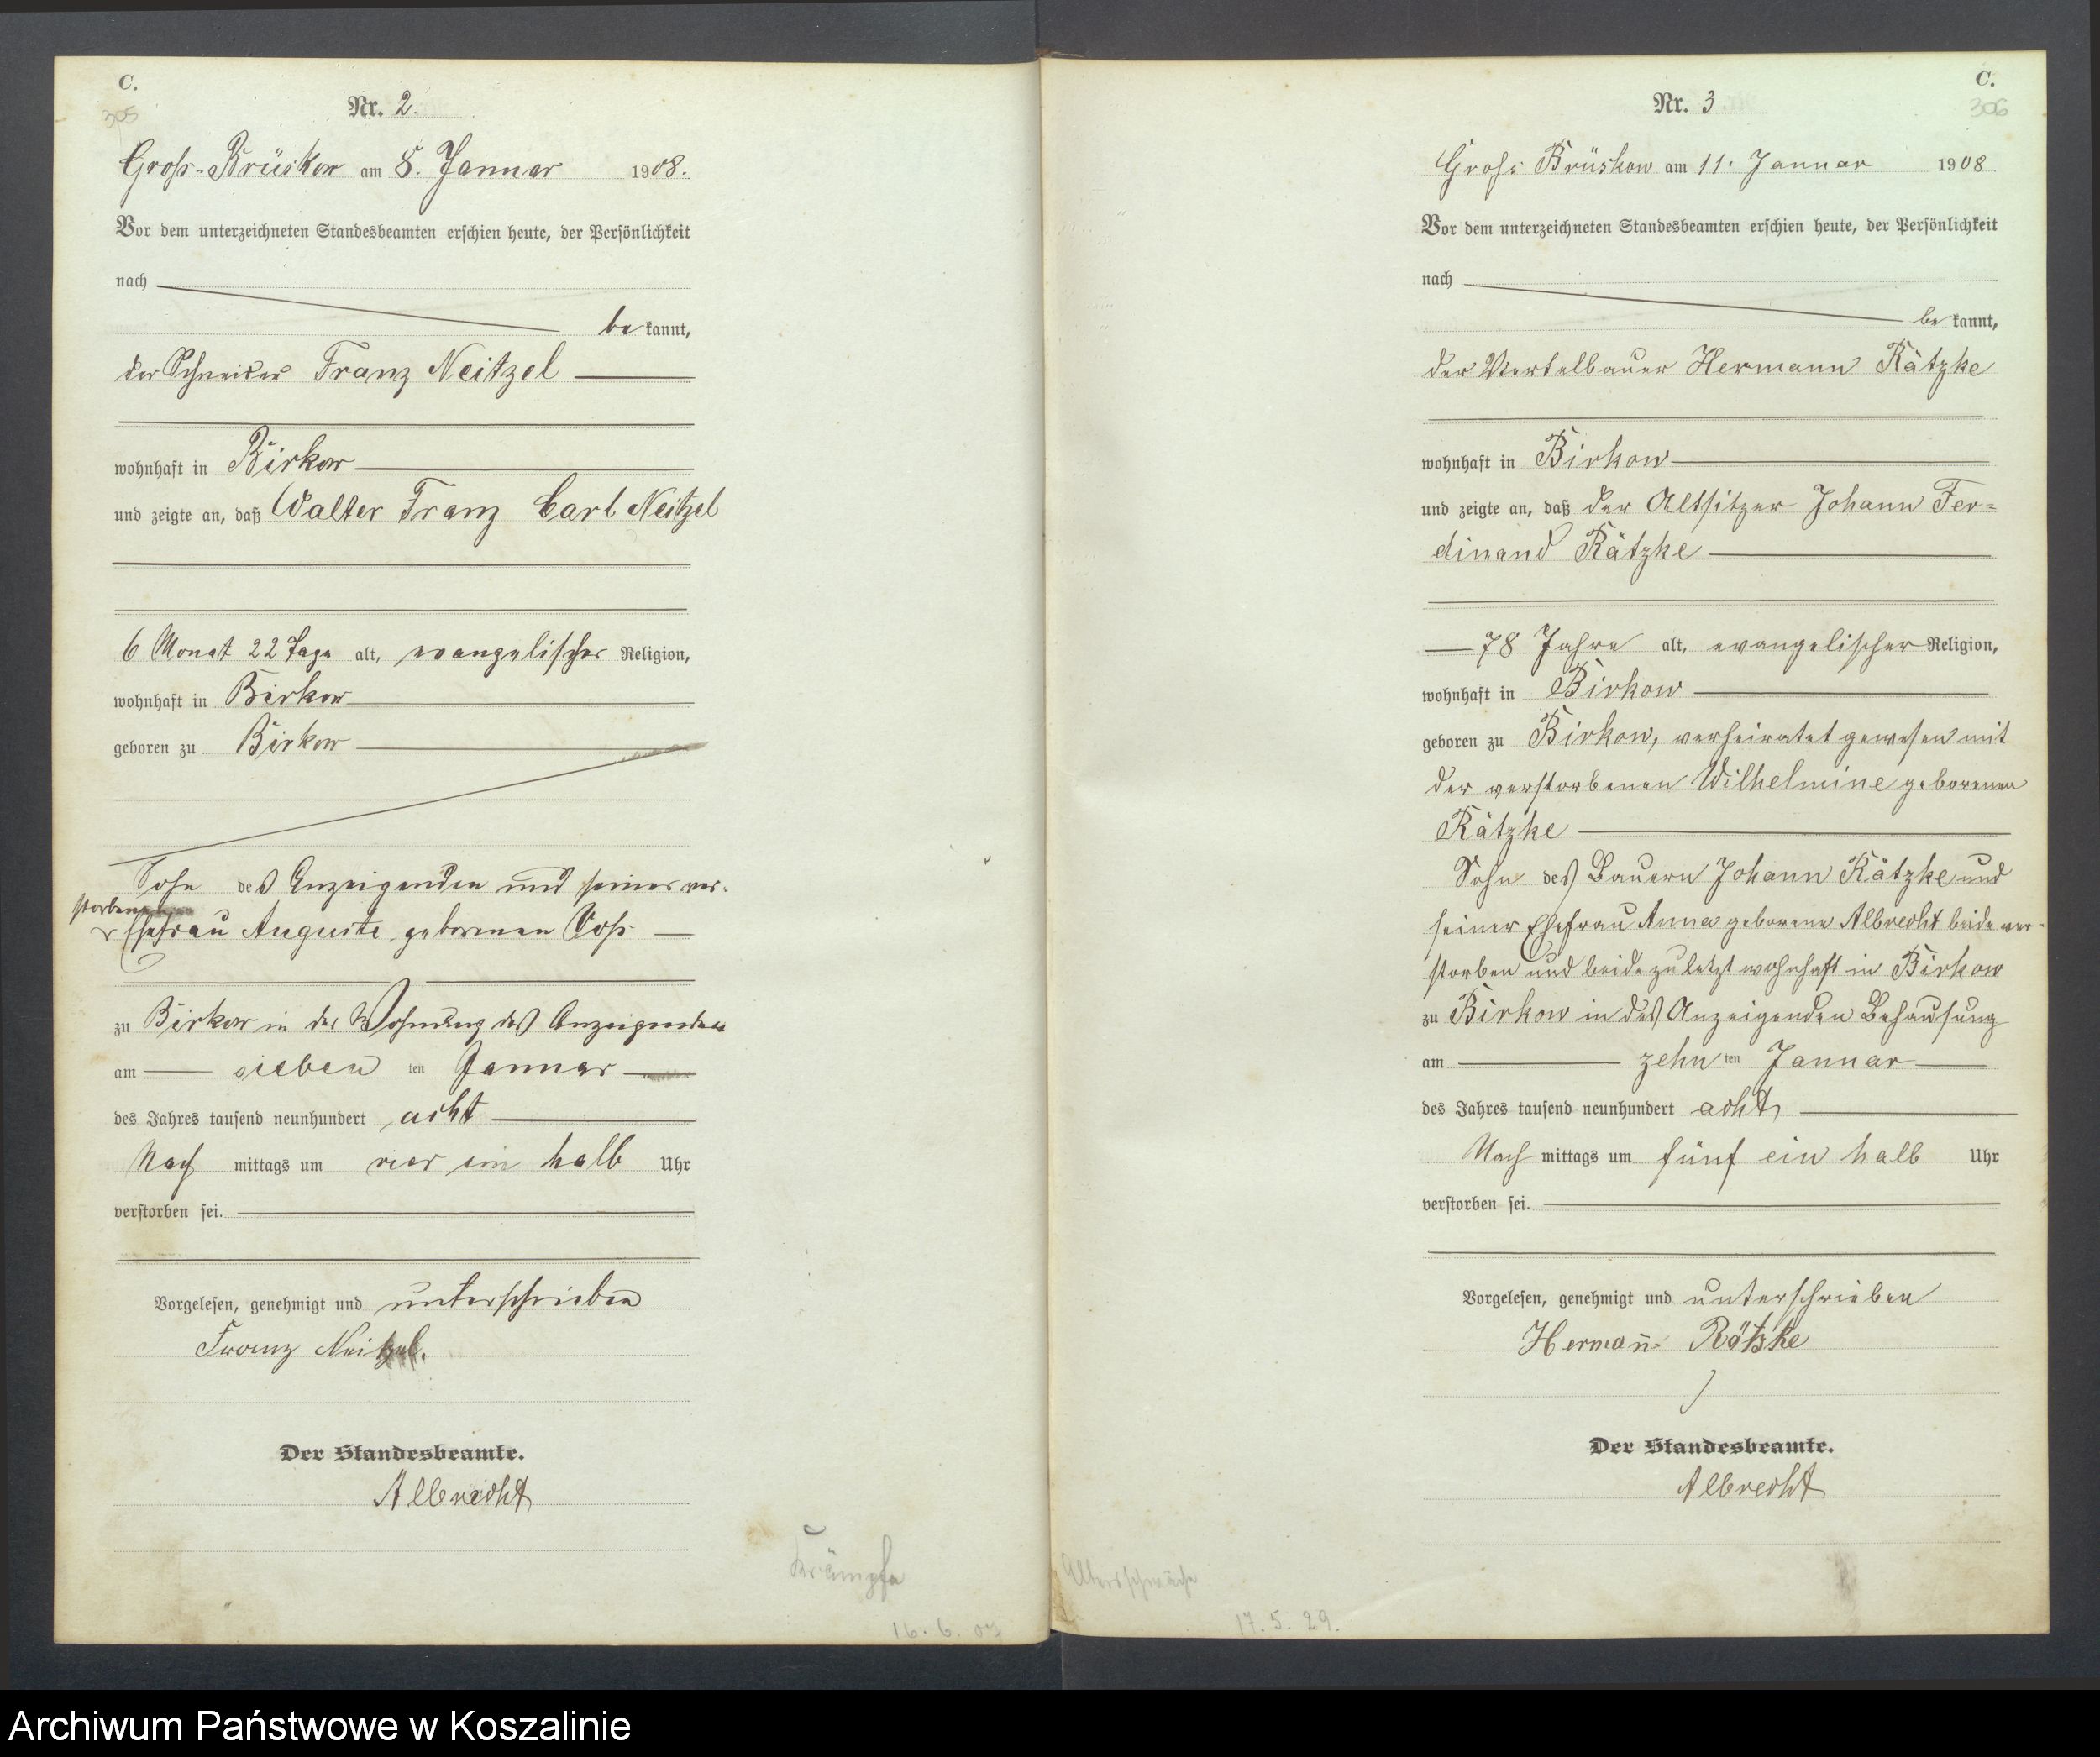 C.
305
Nr. 2.
Groß-Brüskow am 8. Januar 1908.
Vor dem unterzeichneten Standesbeamten erschien heute, der Persönlichkeit
nach
be kannt,
der Schneider Franz Neitzel
wohnhaft in Birkow
und zeigte an, daß Walter Franz Carl Neitzel
6 Monat 22 Tage alt, evangelischer Religion,
wohnhaft in Birkow
geboren zu Birkow
Sohn des Anzeigenden und seiner ver-
storbenen
Ehefrau Auguste geborenen Voß
zu Birkow in der Wohnung des Anzeigenden
am sieben ten Januar
des Jahres tausend neunhundert acht
Nach mittags um vier ein halb Uhr
verstorben sei.
Vorgelesen, genehmigt und unterschrieben
Franz Neitzel.
Der Standesbeamte.
Albrecht
Krämpfe
16. 6. 07
C.
306
Nr. 3
Groß Brüskow am 11. Januar 1908
Vor dem unterzeichneten Standesbeamten erschien heute, der Persönlichkeit
nach
be kannt,
der Viertelbauer Hermann Rätzke
wohnhaft in Birkow
und zeigte an, daß der Altsitzer Johann Fer=
dinand Rätzke
78 Jahre alt, evangelischer Religion,
wohnhaft in Birkow
geboren zu Birkow, verheiratet gewesen mit
der verstorbenen Wilhelmine geborenen
Rätzke
Sohn des Bauern Johann Rätzke und
seiner Ehefrau Anna geborene Albrecht beide ver-
storben und beide zuletzt wohnhaft in Birkow
zu Birkow in des Anzeigenden Behausung
am zehn ten Januar
des Jahres tausend neunhundert acht
Nach mittags um fünf ein halb Uhr
verstorben sei.
Vorgelesen, genehmigt und unterschrieben
Hermañ Rätzke
Der Standesbeamte.
Albrecht
Altersschwäche
17. 5. 29.
Archiwum Państwowe w Koszalinie